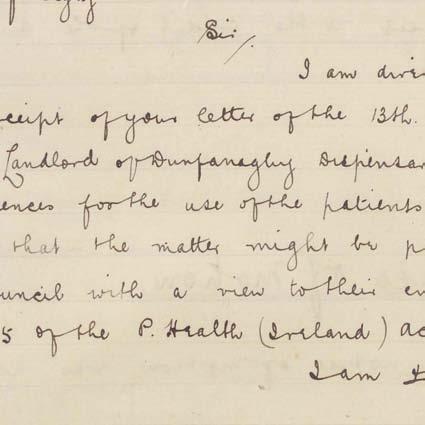 Sir/.
I am dire
ceipt of your letter of the 13th.
Landlord of Dunfanaghy Dispensar
ences for the use of the patients
that the matter might be p
ouncil with a view to their en
5 of the P. Health (Ireland) Ac
I am &